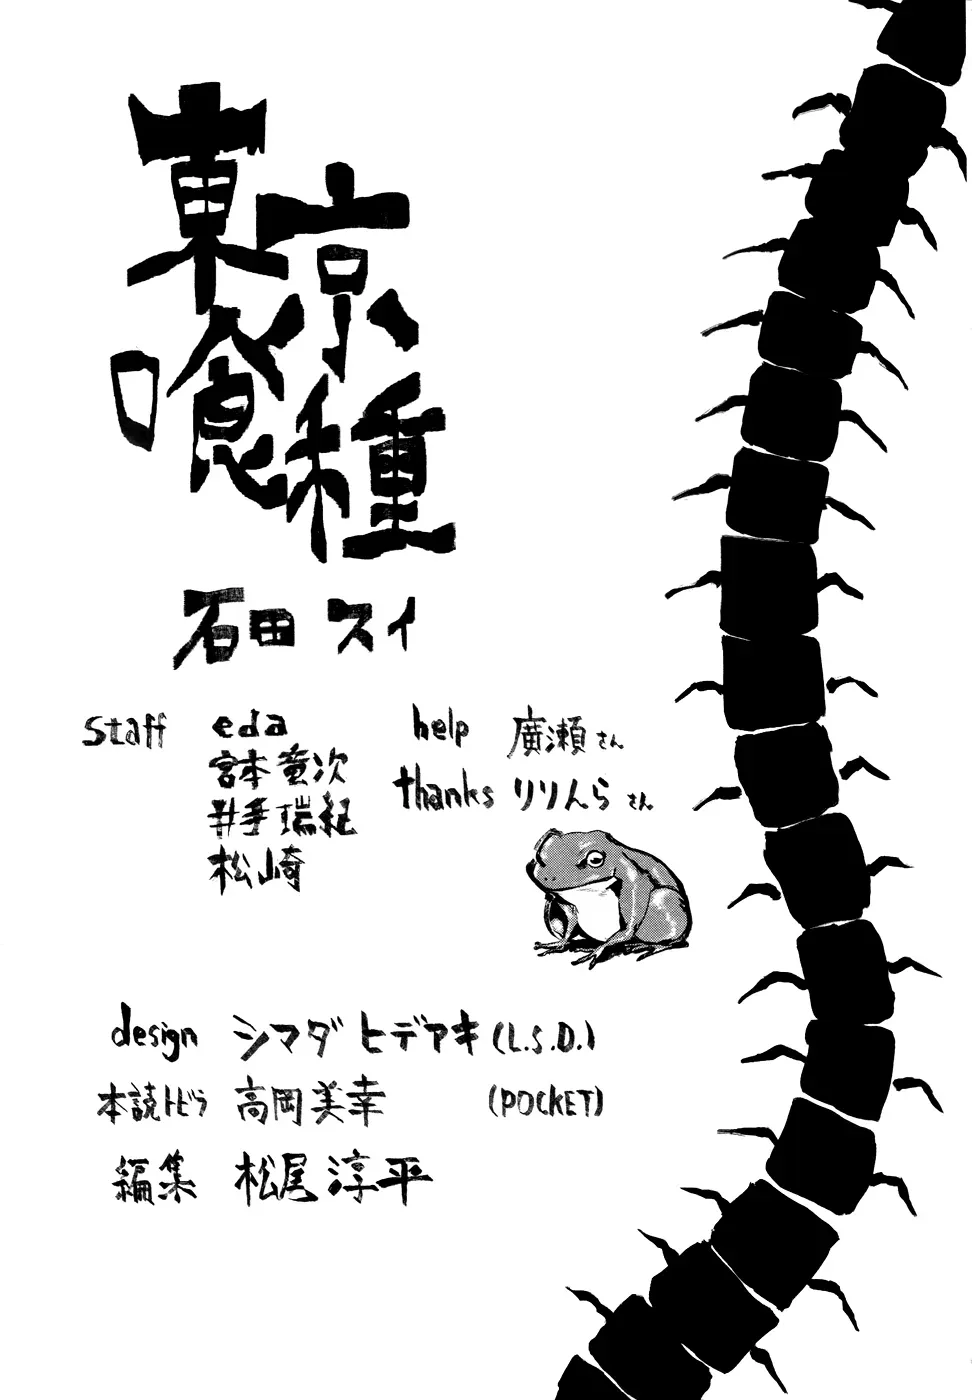 東京
喰種
石田スイ
staff eda
宮本竜次
井手瑞紀
松崎
help 廣瀬さん
thanks りりんらさん
design シマダヒデアキ(L.S.D.)
本誌トビラ 高岡美幸 (POCKET)
編集 松尾淳平